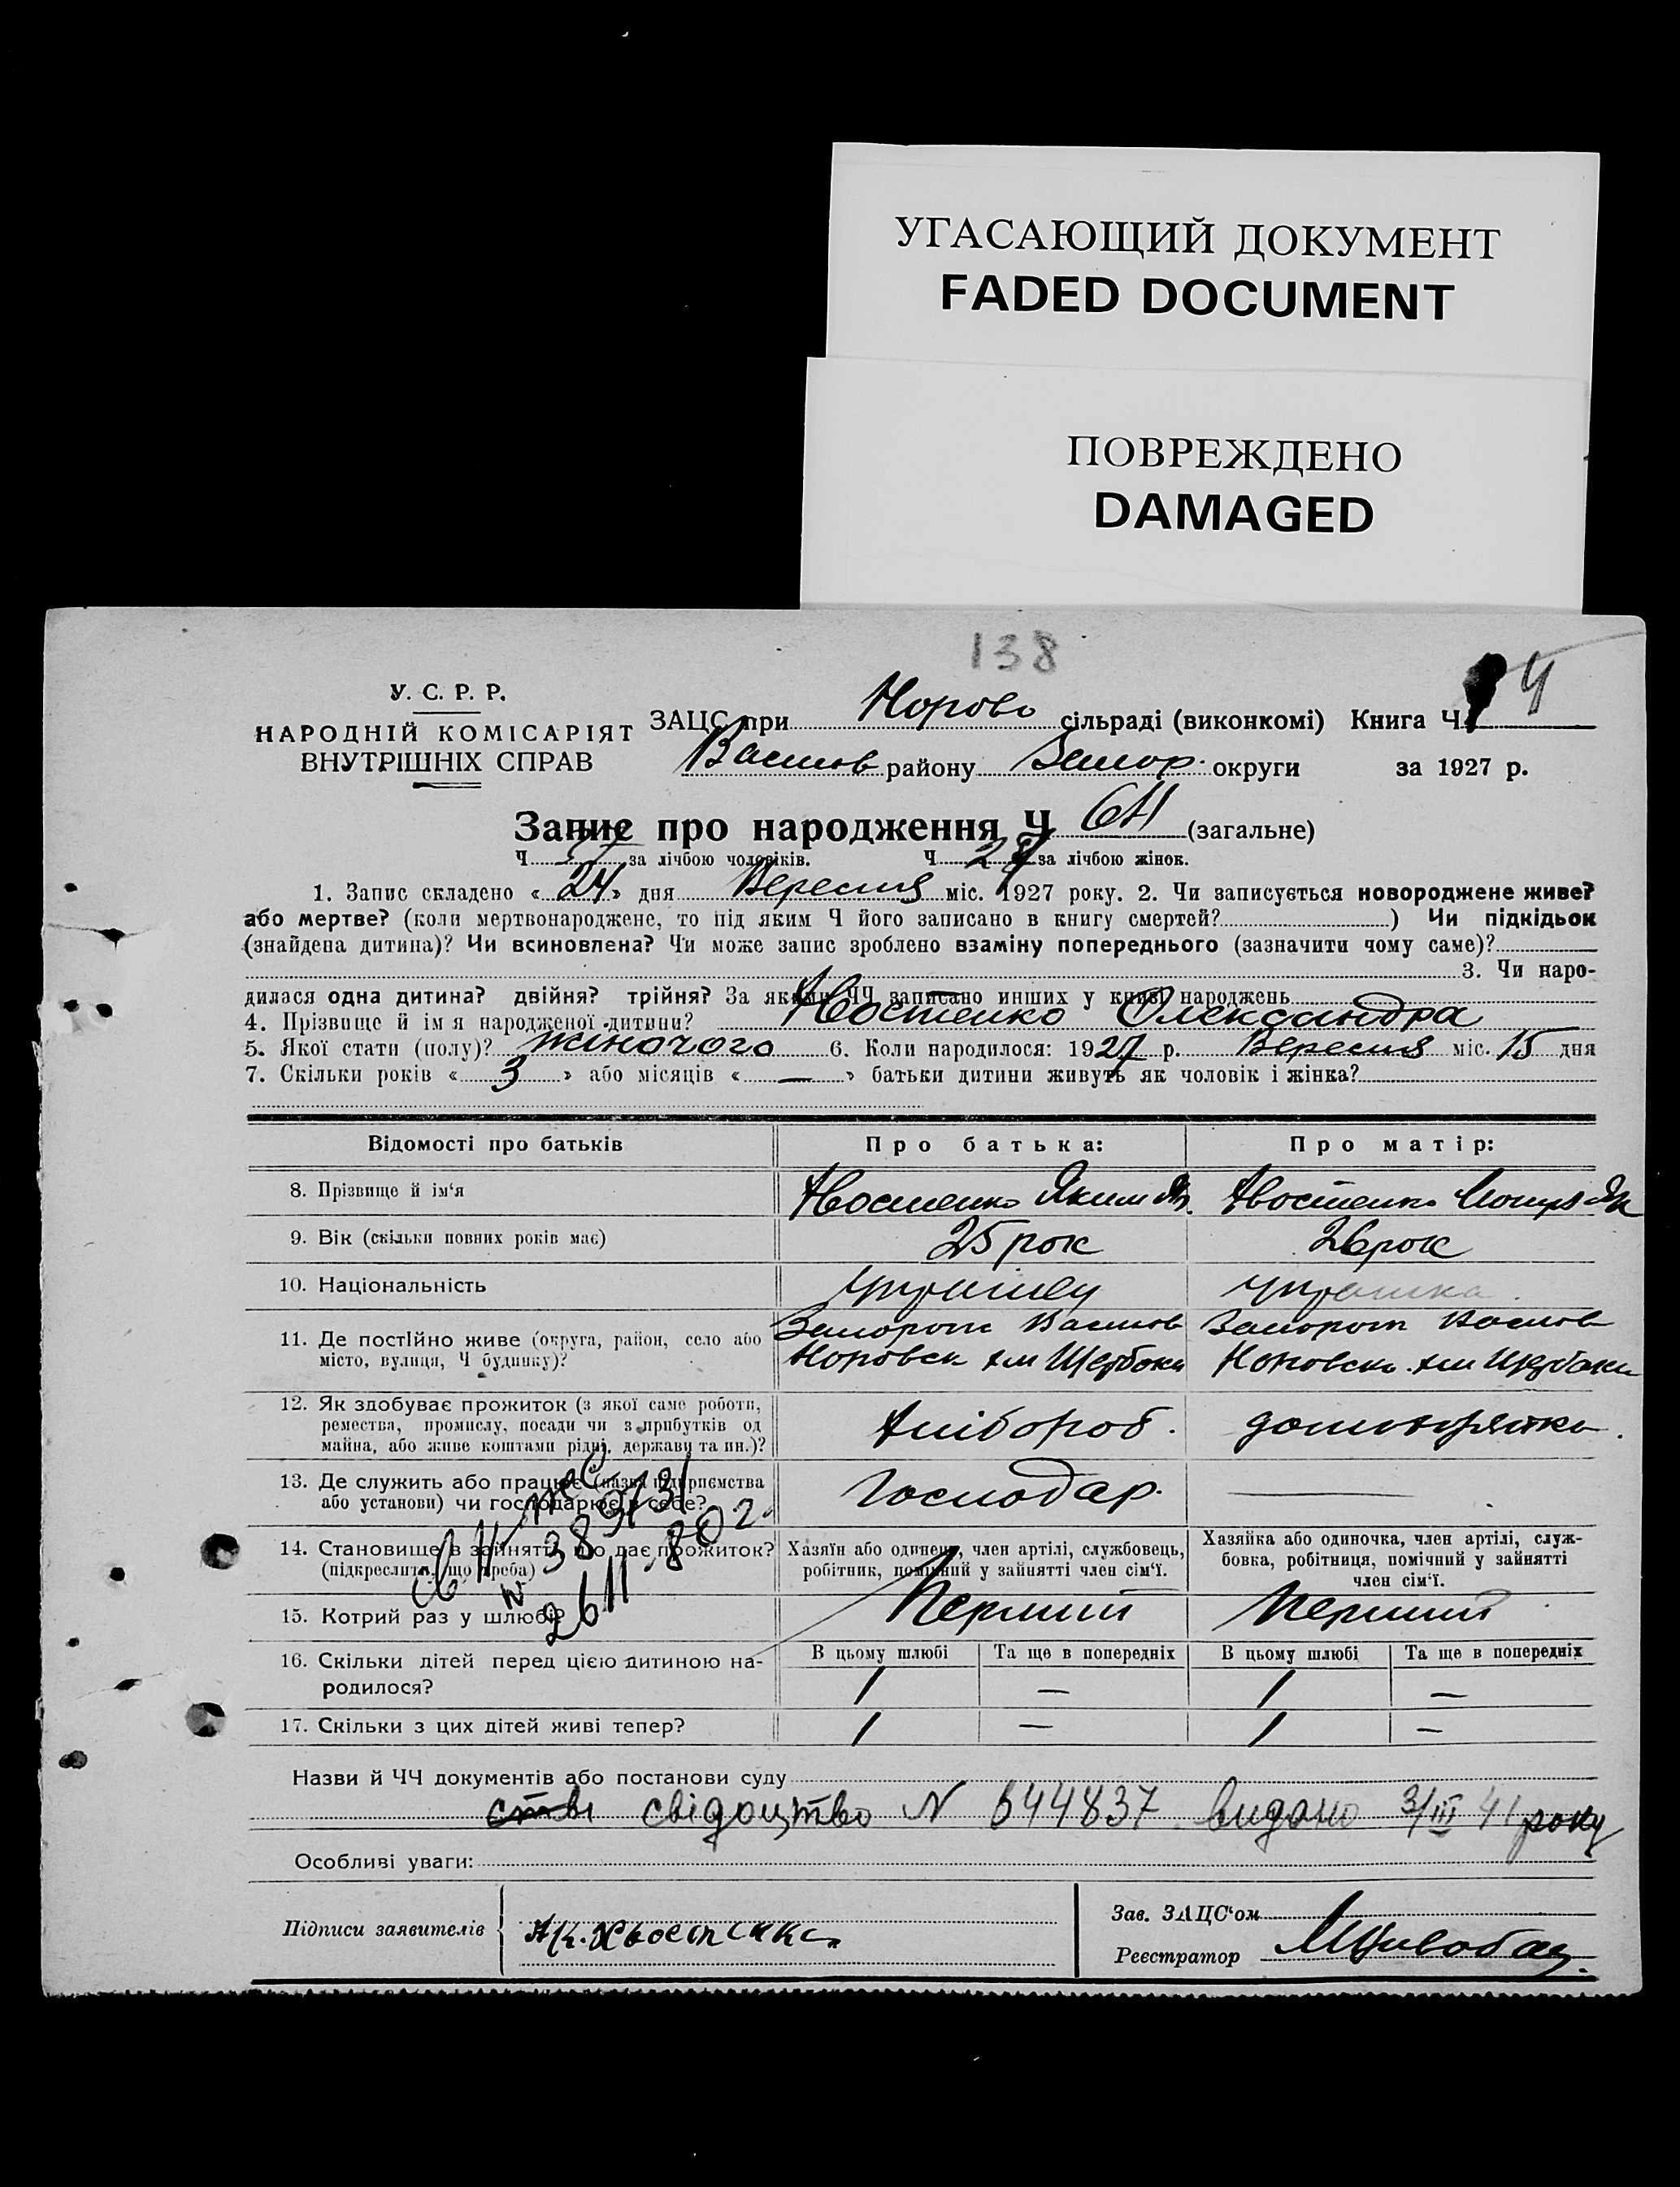 УГАСАЮЩИЙ ДОКУМЕНТ
FADED DOCUMENT
ПОВРЕЖДЕНО
DAMAGED
138
У. С. Р. Р.
НАРОДНІЙ КОМІСАРІЯТ
ВНУТРІШНІХ СПРАВ
ЗАЦС при сільраді (виконкомі) Книга Ч. 4
району округи за 1927 р.
Запис про народження Ч (загальне)
Ч за лічбою чоловіків. Ч за лічбою жінок.
1. Запис складено « 24 » дня Вересня міс. 1927 року. 2. Чи записується новороджене живе?
або мертве? (коли мертвонароджене, то під яким Ч його записано в книгу смертей? ) Чи підкідьок
(знайдена дитина)? Чи всиновлена? Чи може запис зроблено взаміну попереднього (зазначити чому саме)?
3. Чи наро-
дилася одна дитина? двійня? трійня? За якими ЧЧ записано инших у книзі народжень
4. Прізвище й ім я народженої дитини? Хвостенко Олександра
5. Якої стати (полу)? жіночого 6. Коли народилося: 1927 р. Вересня міс. 15 дня
7. Скільки років « 3 » або місяців « — » батьки дитини живуть як чоловік і жінка?
Відомості про батьків Про батька: Про матір:
8. Прізвище й ім'я Хвостенко Яким Хвостенко
9. Вік (скільки повних років має) 25 рок 26 рок
10. Національність
11. Де постійно живе (округа, район, село або
місто, вулиця, Ч будинку)?
12. Як здобуває прожиток (з якої саме роботи,
ремества, промислу, посади чи з прибутків од
майна, або живе коштами рідні, держави та ин.)? Хлібороб.
13. Де служить або працює (назва підприємства
або установи) чи господарює в себе? Господар. —
14. Становище в занятті, що дає прожиток?
(підкреслити, що треба)
Хазяїн або одинець, член артілі, службовець,
робітник, помічний у зайнятті член сім'ї.
Хазяйка або одиночка, член артілі, служ-
бовка, робітниця, помічний у зайнятті
член сім'ї.
15. Котрий раз у шлюбі? Перший Перший
16. Скільки дітей перед цією дитиною на-
родилося?
В цьому шлюбі Та ще в попередніх В цьому шлюбі Та ще в попередніх
1 — 1 —
17. Скільки з цих дітей живі тепер? 1 — 1 —
Назви й ЧЧ документів або постанови суду
свідоцтво N 644837 видано 3/III 41 року
Особливі уваги:
Підписи заявителів
Зав. ЗАЦС'ом
Реєстратор